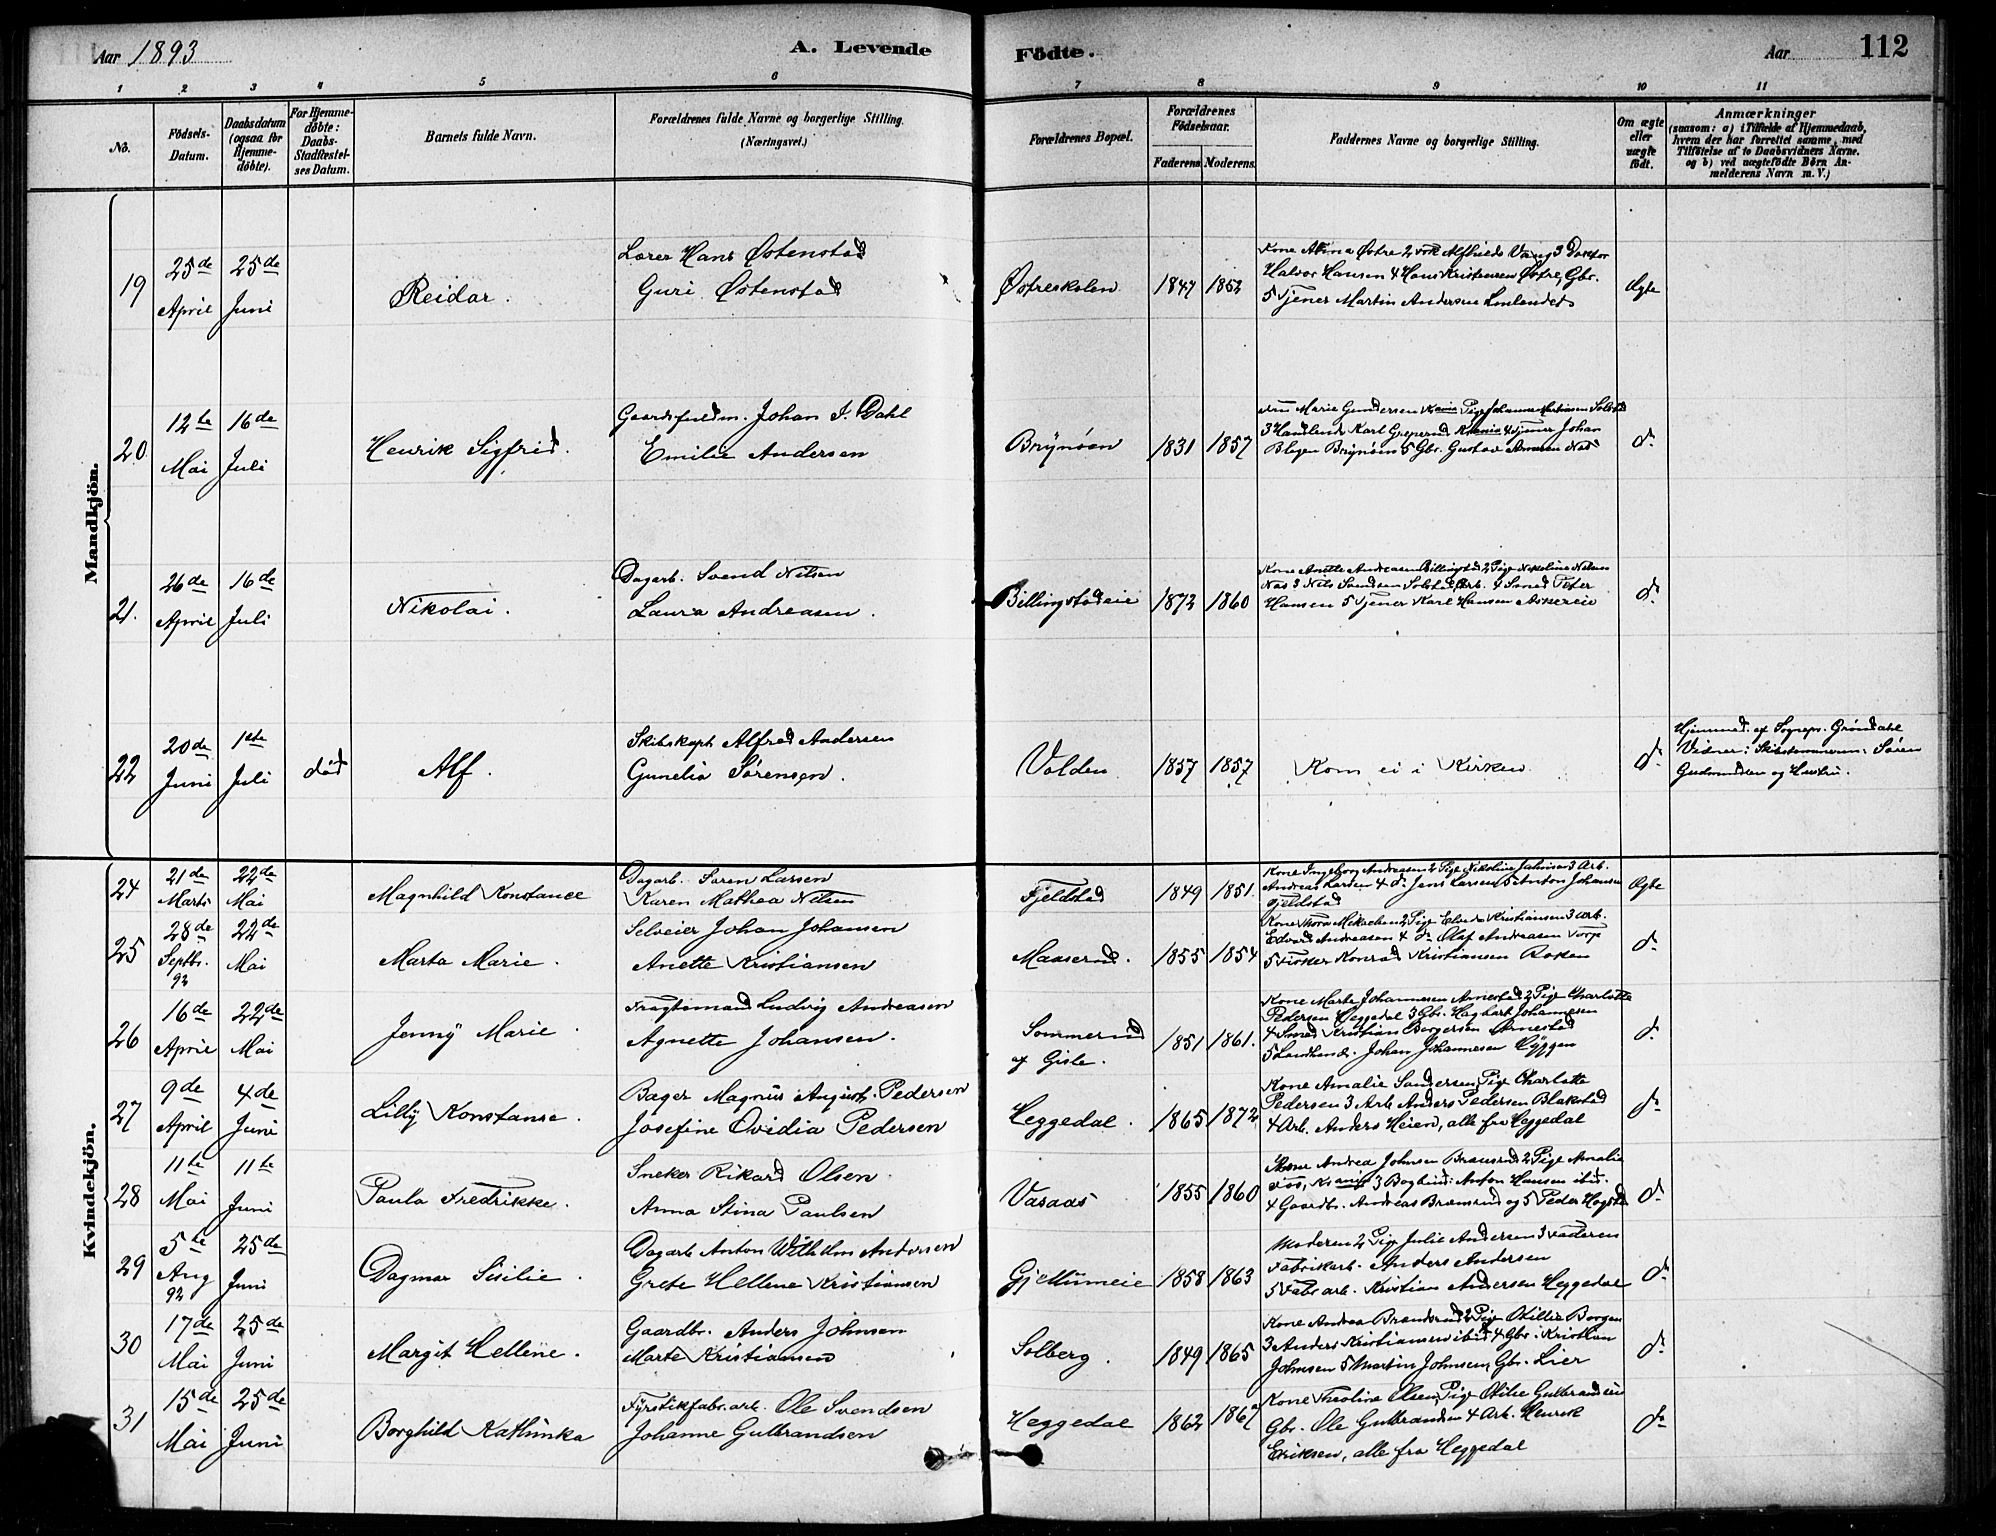 Aar 1893
A. Levende
Födte.
Aar
112
1 2 3 4 5 6 7 8 9 10 11
No.
Födsels-
Datum.
Daabsdatum
(ogsaa for
Hjemme-
døbte).
For Hjemme-
døbte:
Daabs-
Stadfæstel-
ses Datum.
Barnets fulde Navn.
Forældrenes fulde Navne og borgerlige Stilling.
(Næringsvei.)
Forældrenes Bopæl.
Forældrenes
Födselsaar.
Faderens Moderens
Faddernes Navne og borgerlige Stilling.
Om ægte
eller
uægte
født.
Anmærkninger
(saasom: a) i Tilfælde af Hjemmedaab,
hvem der har forrettet samme, med
Tilföielse af to Daabsvidners Navne.
og b) ved uægtefödte Börn An-
melderens Navn m. V.)
Mandkjön.
19
25de
April
25de
Juni
Reidar.
Lærer Hans Østenstad
Guri Østenstad
Østreskolen
1847 1852
Halvor Hansen 4 Hans Kristensen Østre, Gbr.
5 Tjener Martin Andersen
Ægte
20
12te
Mai
16de
Juli
Henrik Sigfrid.
Gaardsfuldm. Johan F. Dahl
Emilie Andersen
Brynøen
1831 1857
Fru Marie Gundersen Krania Pige Johanne Martinsen Solstad
3 Handlende Karl Greperud Krania 4 Tjener Johan
Brynøen 5 Gbr. Gustav Næs
do
21.
26de
April
16de
Juli
Nikolai.
Dagarb. Svend Nilsen
Laura Andreasen.
Billingstadeie
1872 1860
Kone Anette Andreasen Billingstad 2 Pige Nikoline Nilsen
Næs 3 Nils Svendsen Solstad, Arb. 4 Smed Peder
Hansen 5 Tjener Karl Hansen Askereie
do
22
20de
Juni
1ste
Juli
død
Alf.
Skibskapt. Alfred Andersen
Gunelia Sørensen.
Volden
1857 1857
Kom ei i Kirken
do
Hjemmed. af Sognepr. Grøndahl
Vidner: Søren
Gudmundsen og Hustru.
Kvindekjön.
24
21de
Marts
22de
Mai
Magnhild Konstance
Dagarb. Søren Larsen
Karen Mathea Nilsen
Fjeldstad
1849 1851.
Kone Ingeborg Andreasen 2 Pige Nikoline Johnsen 3 Arb.
Andreas Larsen 4 do Jens Larsen 5 Anton Johansen
Fjeldstad
Ægte
25
28de
Septbr.
92
22de
Mai
Marta Marie.
Selveier Johan Johansen
Anette Kristiansen
Maaserud.
1855 1854
Kone Thora Mikaelsen 2 Pige Kristiansen 3 Arb.
Edvard Andreasen 4 do Olaf Andreasen Torp
5 Fisker Konrad Kristiansen Røken
do
26
16de
April
22de
Mai
Jenny Marie.
Fragtemand Ludvig Andreasen
Agnette Johansen.
Sommerud
af Gisle.
1851 1861.
Kone Marte Johannesen Arnestad 2 Pige Charlotte
Pedersen Heggedal 3 Gbr. Hagbart Johannesen
4 Smed Kristian Borgersen Arnestad
5 Landhandl. Johan Johannesen Hyggen
do
27
9de
April
4de
Juni
Lilly Konstanse.
Bager Magnus August Pedersen
Josefine Ovidia Pedersen
Heggedal.
1865 1872
Kone Amalie Sandersen, Pige Charlotte
Pedersen 3 Arb. Anders Pedersen Blakstad
4 Arb. Anders Heien, alle fra Heggedal
do
28
11te
Mai
11te
Juni
Paula Fredrikke.
Sneker Rikard Olsen
Anna Stina Paulsen
Vasaas
1855 1860
Kone Andrea Johnsen Brænerud 2 Pige Amalie
Foss, Krania 3 Bogbind. Anton Hansen ibid.
4 Gaardbr. Andreas Brænerud og 5 Peder Hogstad
do
29
5te
Aug
92
25de
Juni
Dagmar Sisilie.
Dagarb. Anton Wilhelm Andersen
Grete Hellene Kristiansen
Gjellumeie
1858 1863
Moderen 2 Pige Julie Andersen 3 Faderen
Fabrikarb. Anders Andersen
5 Fabr.arb. Kristian Andersen Heggedal
do
30
17de
Mai
25de
Juni
Margit Hellene.
Gaardbr. Anders Johnsen
Marte Kristiansen
Solberg.
1849 1865
Kone Andrea Brænerud 2 Pige Otillie Borgen
3 Anders Kristiansen ibid 4 Gbr. Kristian
Johnsen 5 Martin Johnsen, Gbr. Lier
do
31
15de
Mai
25de
Juni
Borghild Kathinka
Fyrstikfabr.arb. Ole Svendsen
Johanne Gulbrandsen
Heggedal
1862 1867
Kone Theoline Olsen, Pige Otilie Gulbrandsen
Gbr. Ole Gulbrandsen 4 Arb. Henrik
Eriksen, alle fra Heggedal
do